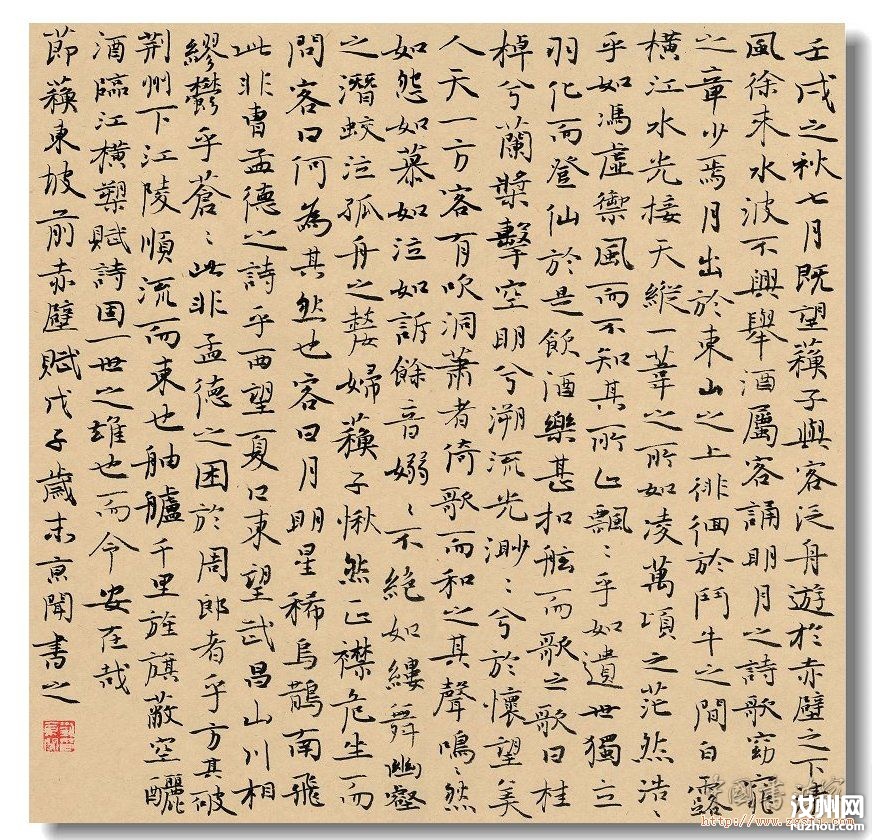 壬戌之秋七月既望蘇子與客泛舟遊於赤壁之下清
風徐來水波不興舉酒屬客誦明月之詩歌窈窕
之章少焉月出於東山之上徘徊於鬥牛之間白露
橫江水光接天縱一葦之所如凌萬頃之茫然浩〻
乎如馮虛禦風而不知其所止飄〻乎如遺世獨立
羽化而登仙於是飲酒樂甚扣舷而歌之歌曰桂
棹兮蘭槳擊空明兮溯流光渺〻兮於懷望美
人天一方客有吹洞蕭者倚歌而和之其聲鳴〻然
如怨如慕如泣如訴餘音嫋〻不絕如縷舞幽壑
之潛蛟泣孤舟之嫠婦蘇子愀然正襟危坐而
問客曰何為其然也客曰月明星稀烏鵲南飛
此非曹孟德之詩乎西望夏口東望武昌山川相
繆鬱乎蒼〻此非孟德之困於周郎者乎方其破
荊州下江陵順流而東也舳艫千里旌旗蔽空釃
酒臨江橫槊賦詩固一世之雄也而今安在哉
節蘇東坡前赤壁賦戊子歲末京聞書之
中國書法家
http://www.zgsfj.com
汝州网
ruzhou.com